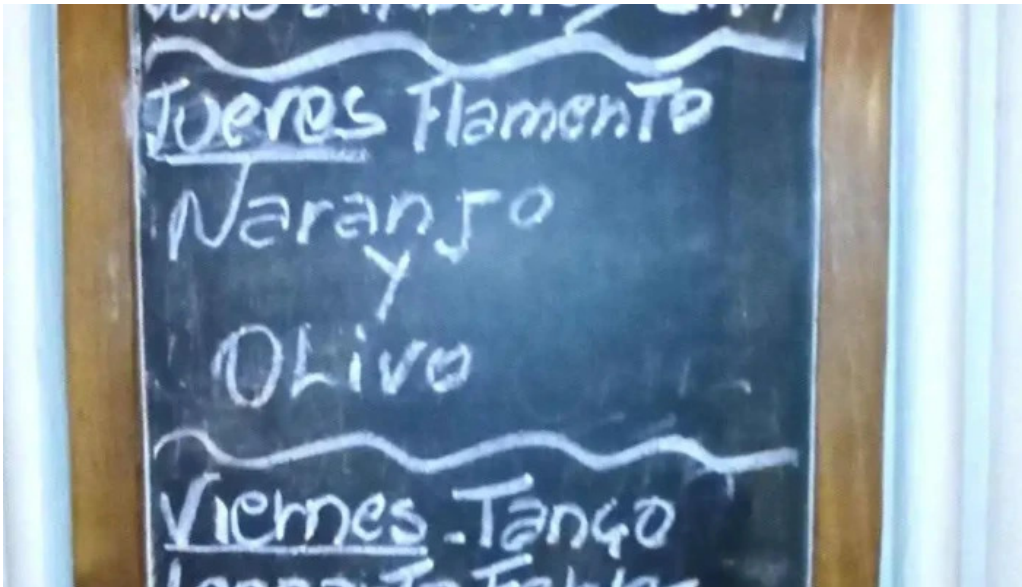 Jueves Flamenco
Naranjo
y
OLivo
Viernes - Tango